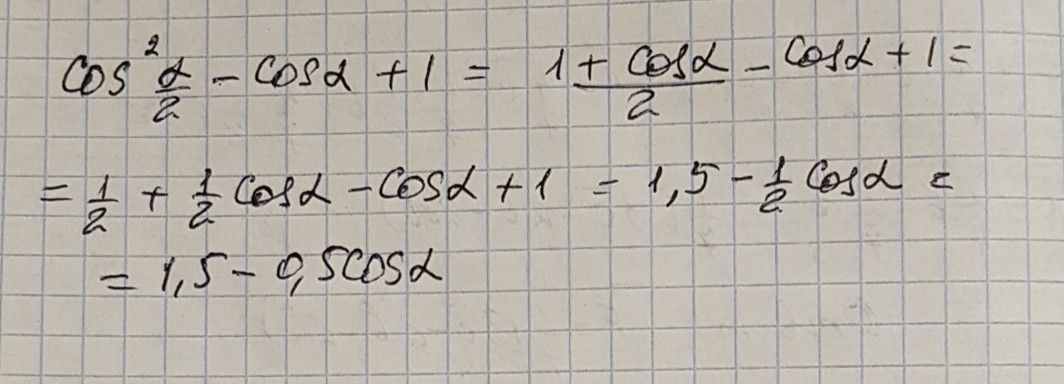 cos² α/2 - cosα + 1 = (1 + cosα)/2 - cosα + 1 =
= 1/2 + 1/2 cosα - cosα + 1 = 1,5 - 1/2 cosα =
= 1,5 - 0,5cosα